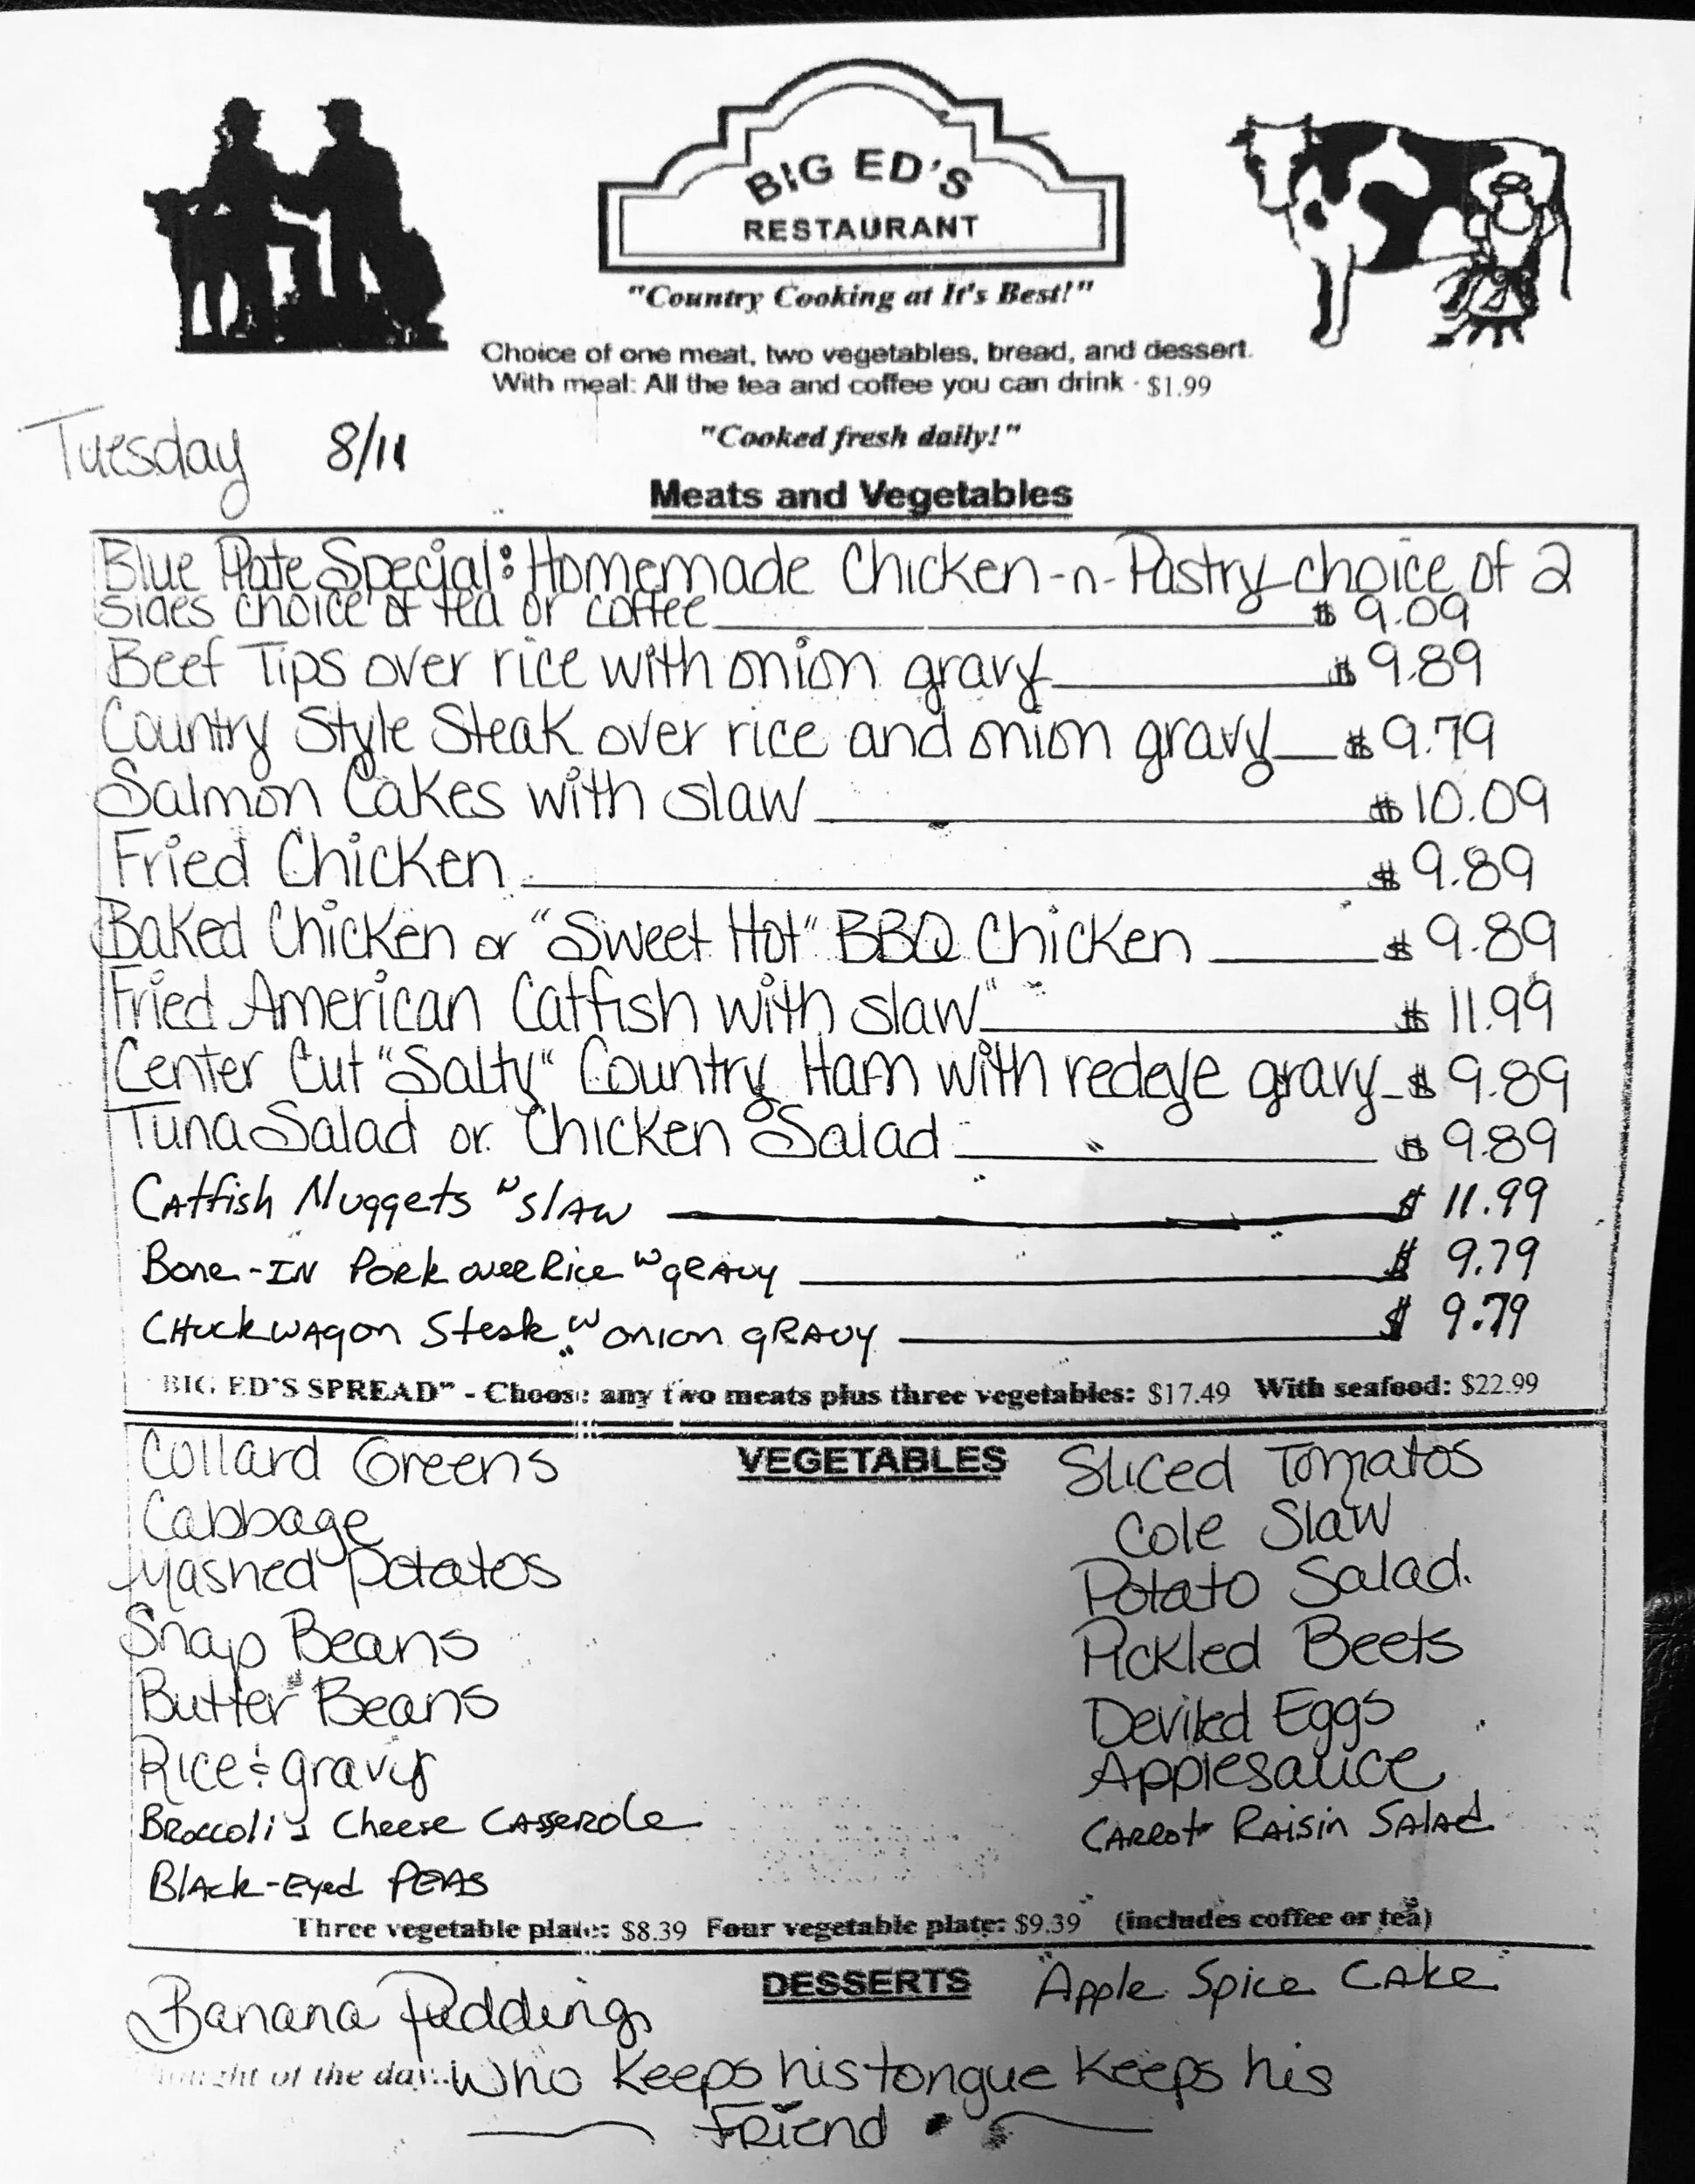 BIG ED'S
RESTAURANT
"Country Cooking at It's Best!"
Choice of one meat, two vegetables, bread, and dessert.
With meal: All the tea and coffee you can drink - $1.99
Tuesday 8/11
"Cooked fresh daily!"
Meats and Vegetables
Blue Plate Special: Homemade Chicken-n-Pastry choice of 2
sides choice of tea or coffee $9.09
Beef Tips over rice with onion gravy $9.89
Country Style Steak over rice and onion gravy $9.79
Salmon Cakes with slaw $10.09
Fried Chicken $9.89
Baked Chicken or "Sweet Hot" BBQ Chicken $9.89
Fried American Catfish with slaw $11.99
Center Cut "Salty" Country Ham with redeye gravy $9.89
Tuna Salad or Chicken Salad $9.89
Catfish Nuggets w slaw $11.99
Bone-IN Pork over Rice w gravy $9.79
Chuckwagon Steak w onion gravy $9.79
"BIG ED'S SPREAD" - Choose any two meats plus three vegetables: $17.49 With seafood: $22.99
VEGETABLES
Collard Greens
Cabbage
Mashed Potatos
Snap Beans
Butter Beans
Rice & gravy
Broccoli & Cheese Casserole
Black-Eyed Peas
Sliced Tomatos
Cole Slaw
Potato Salad
Pickled Beets
Deviled Eggs
Applesauce
Carrot Raisin Salad
Three vegetable plate: $8.39 Four vegetable plate: $9.39 (includes coffee or tea)
DESSERTS
Banana Pudding
Apple Spice Cake
Thought of the day... Who keeps his tongue keeps his
Friend.